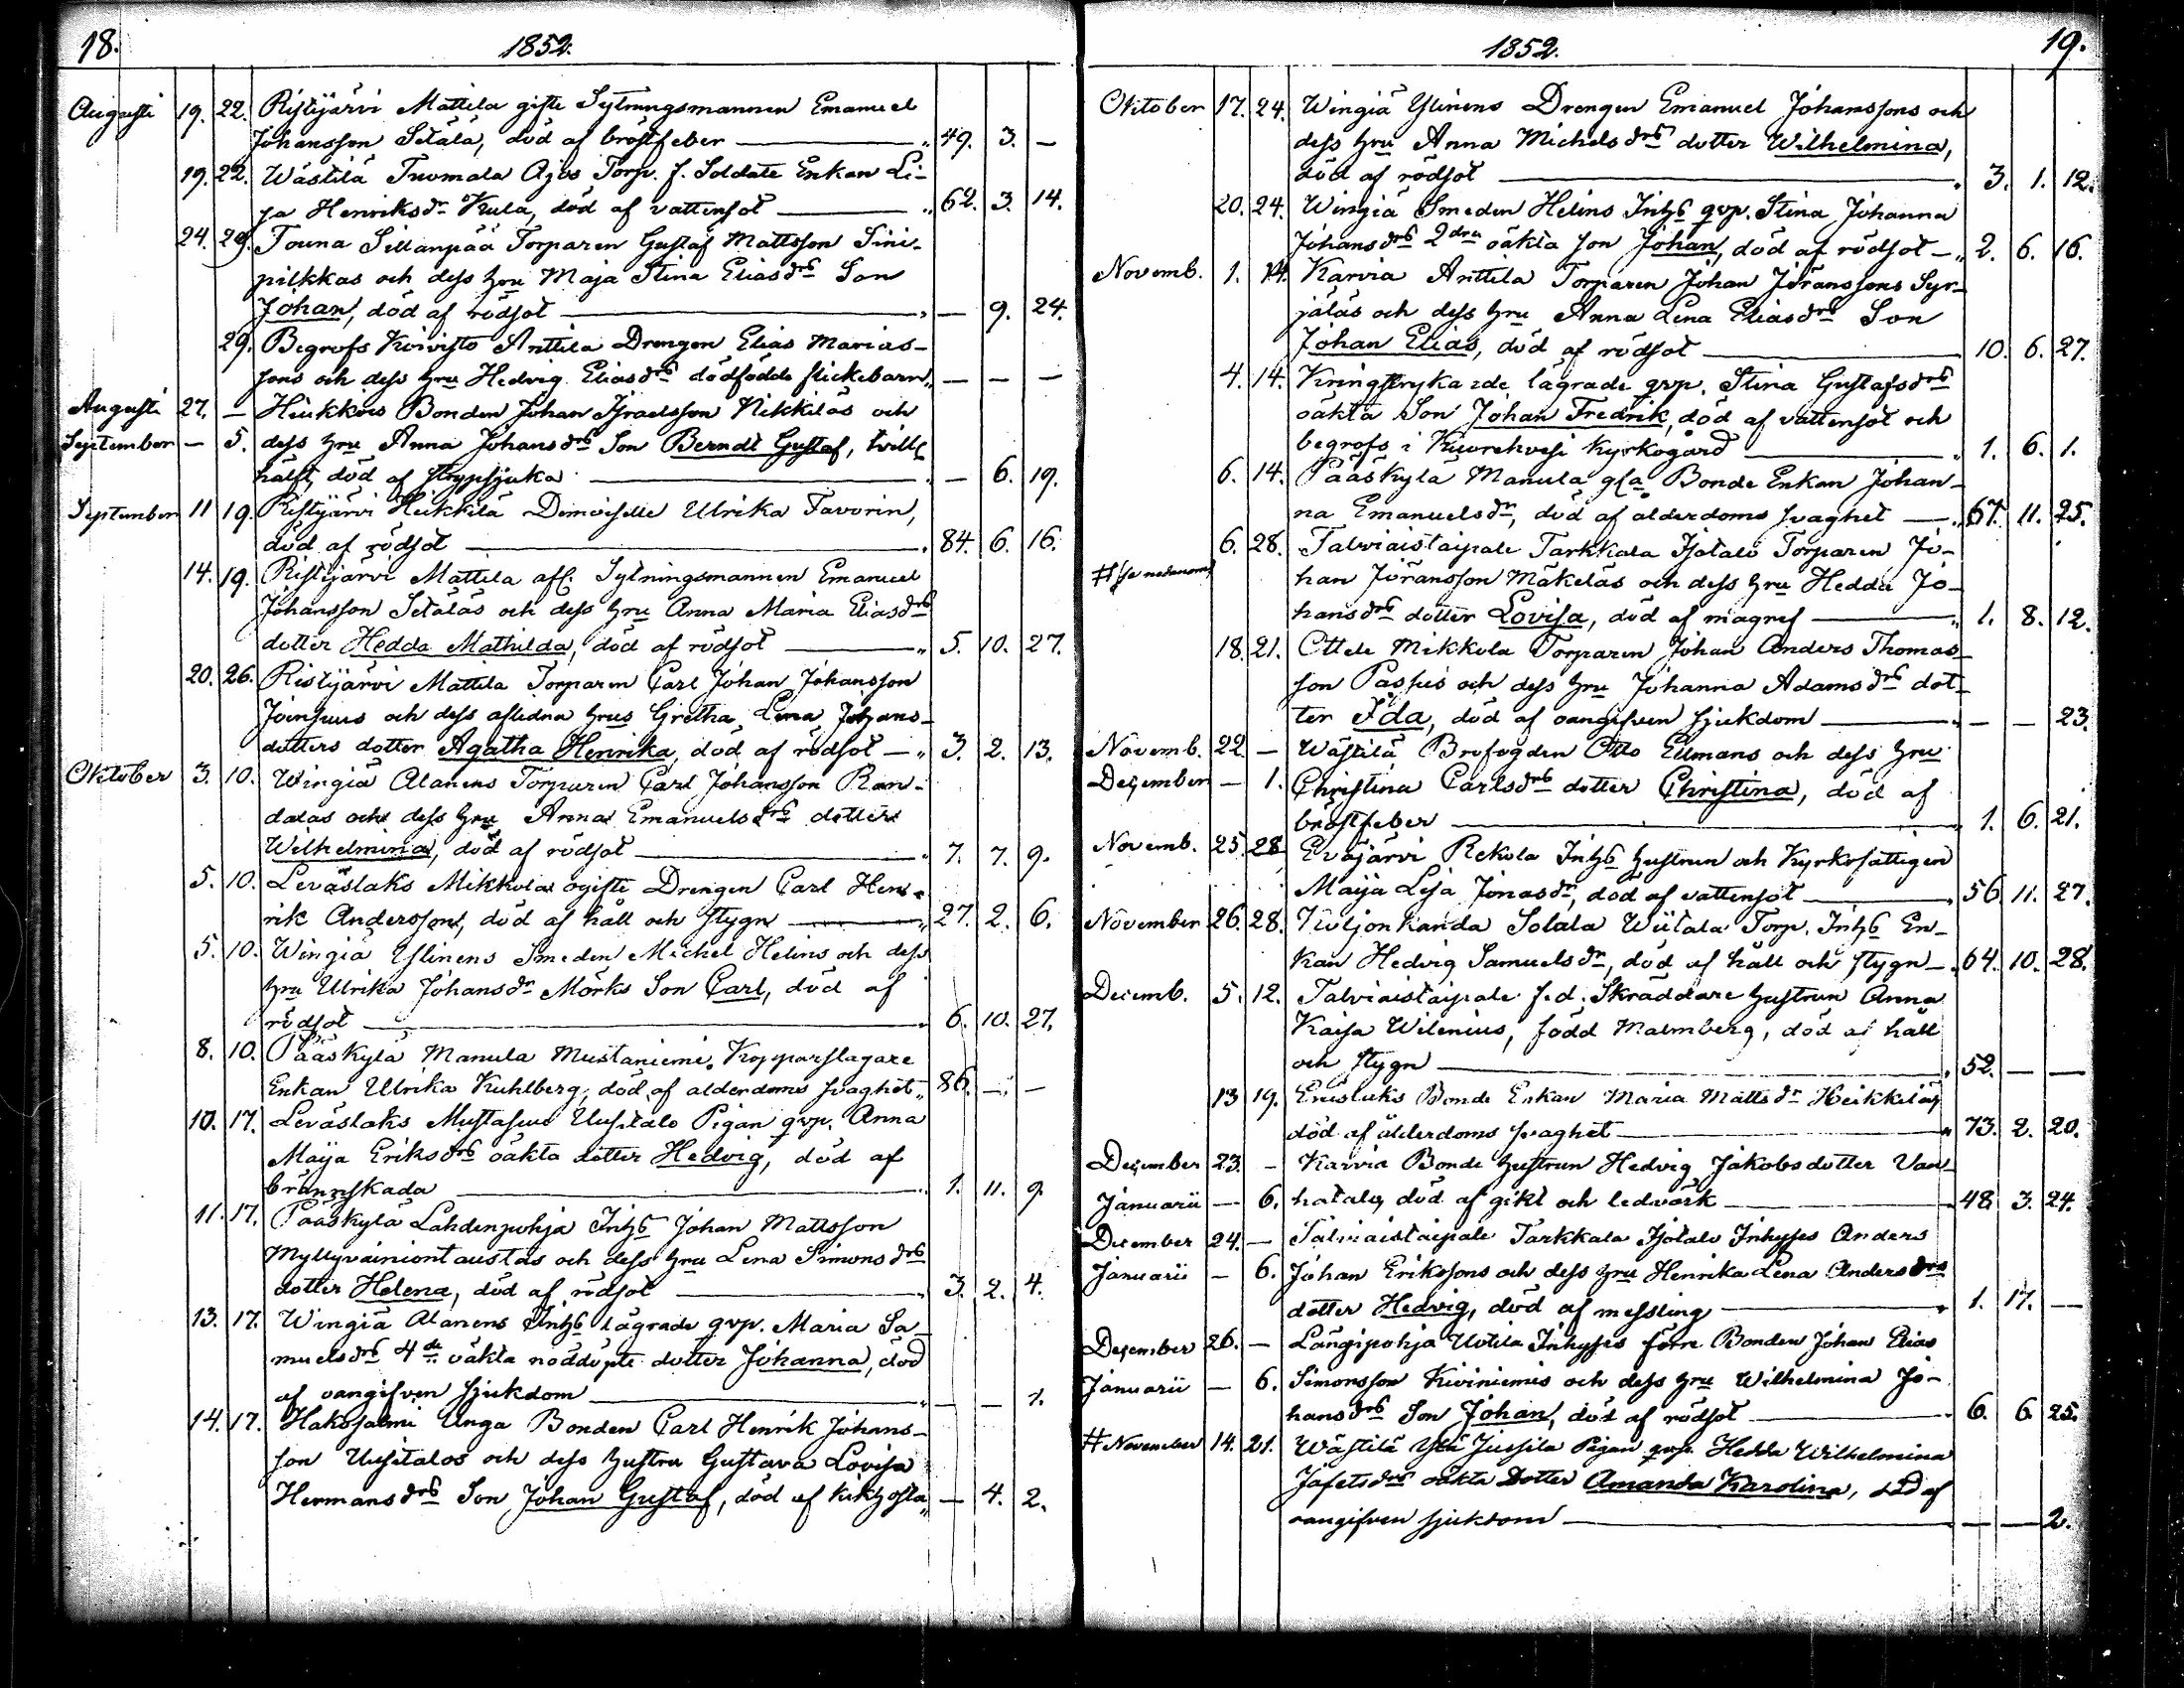 18.
1852.
Augusti 19. 22. Ristijärvi Mattila gifte Sytningsmannen Emanuel
Johansson Setälä, död af bröstfeber — " 49. 3. —
19. 22. Wästilä Tuomala Ajos Torp. f. Soldate Enkan Li-
sa Henriksdr Kula, död af vattensot — " 62. 3. 14.
24. 29. Jouna Sillanpää Torparen Gustaf Mattsson Sini-
pilkkas och dess hru Maja Stina Eliasdrs Son
Johan, död af rödsot — " — 9. 24.
29. Begrofs Koivisto Anttila Drengen Elias Marias-
sons och dess hru Hedvig Eliasdrs dödfödde flickebarn " — — —
Augusti 27. — Heikkois Bonden Johan Israelsson Nikkiläs och
September — 5. dess hru Anna Johansdrs Son Berndt Gustaf, tvill-
hälft, död af strypsjuka — " — 6. 19.
September 11 19. Ristijärvi Heikkilä Demoiselle Ulrika Favorin,
död af rödsot — " 84. 6. 16.
14. 19. Ristijärvi Mattila afl. Sytningsmannen Emanuel
Johansson Setäläs och dess hru Anna Maria Eliasdrs
dotter Hedda Mathilda, död af rödsot — " 5. 10. 27.
20. 26. Ristijärvi Mattila Torparen Carl Johan Johansson
Joensuus och dess aflidna hrus Gretha Lena Johans-
dotters dotter Agatha Henrika, död af rödsot — " 3. 2. 13.
Oktober 3. 10. Wingiä Alanens Torparen Carl Johansson Ran-
dalas och dess hru Anna Emanuelsdrs dotter
Wilhelmina, död af rödsot — " 7. 7. 9.
5. 10. Leväslaks Mikkola ogifte Drengen Carl Hen-
rik Andersson, död af håll och stygn — " 27. 2. 6.
5. 10. Wingiä Ylinens Smeden Michel Helins och dess
hru Ulrika Johansdr Mörks Son Carl, död af
rödsot — " 6. 10. 27.
8. 10. Pääskylä Manula Mustaniemi Kopparslagare
Enkan Ulrika Kuhlberg, död af alderdoms svaghet " 86. — —
10. 17. Leväslaks Mustasuo Uusitalo Pigan qvp. Anna
Maija Eriksdrs oäkta dotter Hedvig, död af
brännskada — " 1. 11. 9.
11. 17. Pääskylä Lahdenpohja Inhs Johan Mattsson
Myllyväiniontaustas och dess hru Lena Simonsdrs
dotter Helena, död af rödsot — " 3. 2. 4.
13. 17. Wingiä Alanens Inhs lägrade qvp. Maria Sa-
muelsdrs 4de oäkta nöddöpte dotter Johanna, död
af oangifven sjukdom — " — — 1.
14. 17. Hakosalmi Unga Bonden Carl Henrik Johans-
son Uusitalos och dess hustru Gustava Lovisa
Hermansdrs Son Johan Gustaf, död af kikhosta " — 4. 2.
1852.
19.
Oktober 17. 24. Wingiä Ylinens Drengen Emanuel Johanssons och
dess hru Anna Michelsdrs dotter Wilhelmina,
död af rödsot — " 3. 1. 12.
20. 24. Wingiä Smeden Helins Inhs qvp. Stina Johanna
Johansdrs 2dra oäkta son Johan, död af rödsot — " 2. 6. 16.
Novemb. 1. 14. Karvia Anttila Torparen Johan Jöranssons Syr-
jäläs och dess hru Anna Lena Eliasdrs Son
Johan Elias, död af rödsot — 10. 6. 27.
4. 14. Kringstrykande lägrade qvp. Stina Gustafsdrs
oäkta Son Johan Fredrik, död af vattensot och
begrofs i Kuorehvesi Kyrkogård — " 1. 6. 1.
6. 14. Pääskylä Manula gla Bonde Enkan Johan-
na Emanuelsdr, död af alderdoms svaghet — " 67. 11. 25.
6. 28. Talviaistaipale Tarkkala Isotalo Torparen Jo-
# se nedanom
han Jöransson Mäkeläs och dess hru Hedda Jo-
hansdrs dotter Lovisa, död af magref — " 1. 8. 12.
18. 21. Ottele Mikkola Torparen Johan Anders Thomas-
son Passis och dess hru Johanna Adamsdrs dot-
ter Ida, död af oangifven sjukdom — " — — 23.
Novemb. 22 — Wästilä Brofogden Otto Ellmans och dess hru
December — 1. Christina Carlsdrs dotter Christina, död af
bröstfeber — " 1. 6. 21.
Novemb. 25. 28 Eväjärvi Rekola Inhs hustrun och Kyrkofattigen
Maija Lisa Jonasdr, död af vattensot — " 56 11. 27.
November 26. 28. Koljonkanda Solala Wiitala Torp. Inhs En-
kan Hedvig Samuelsdr, död af håll och stygn — " 64. 10. 28.
Decemb. 5. 12. Talviaistaipale f.d. Skräddare hustrun Anna
Kaisa Wilenius, född Malmberg, död af håll
och stygn — " 52. — —
13 19. Eräslaks Bonde Enkan Maria Mattsdr Heikkilä,
död af ålderdoms svaghet — " 73. 2. 20.
December 23. — Karvia Bonde hustrun Hedvig Jakobsdotter Van-
Januarii — 6. hatalo, död af gikt och ledvärk — 48 3. 24.
December 24. — Talviaistaipale Tarkkala Isotalo Inhyses Anders
Januarii — 6. Johan Erikssons och dess hru Henrika Lena Andersdrs
dotter Hedvig, död af messling — " 1. 17. —
December 26. — Längipohja Uotila Inhyses förre Bonden Johan Elias
Januarii — 6. Simonsson Kiviniemis och dess hru Wilhelmina Jo-
hansdrs Son Johan, död af rödsot — " 6. 6 25.
# November 14. 21. Wästilä Ylä Jussila Pigan qvp. Hedda Wilhelmina
Jafetsdrs oäkta Dotter Amanda Karolina, död af
oangifven sjukdom — — — 2.